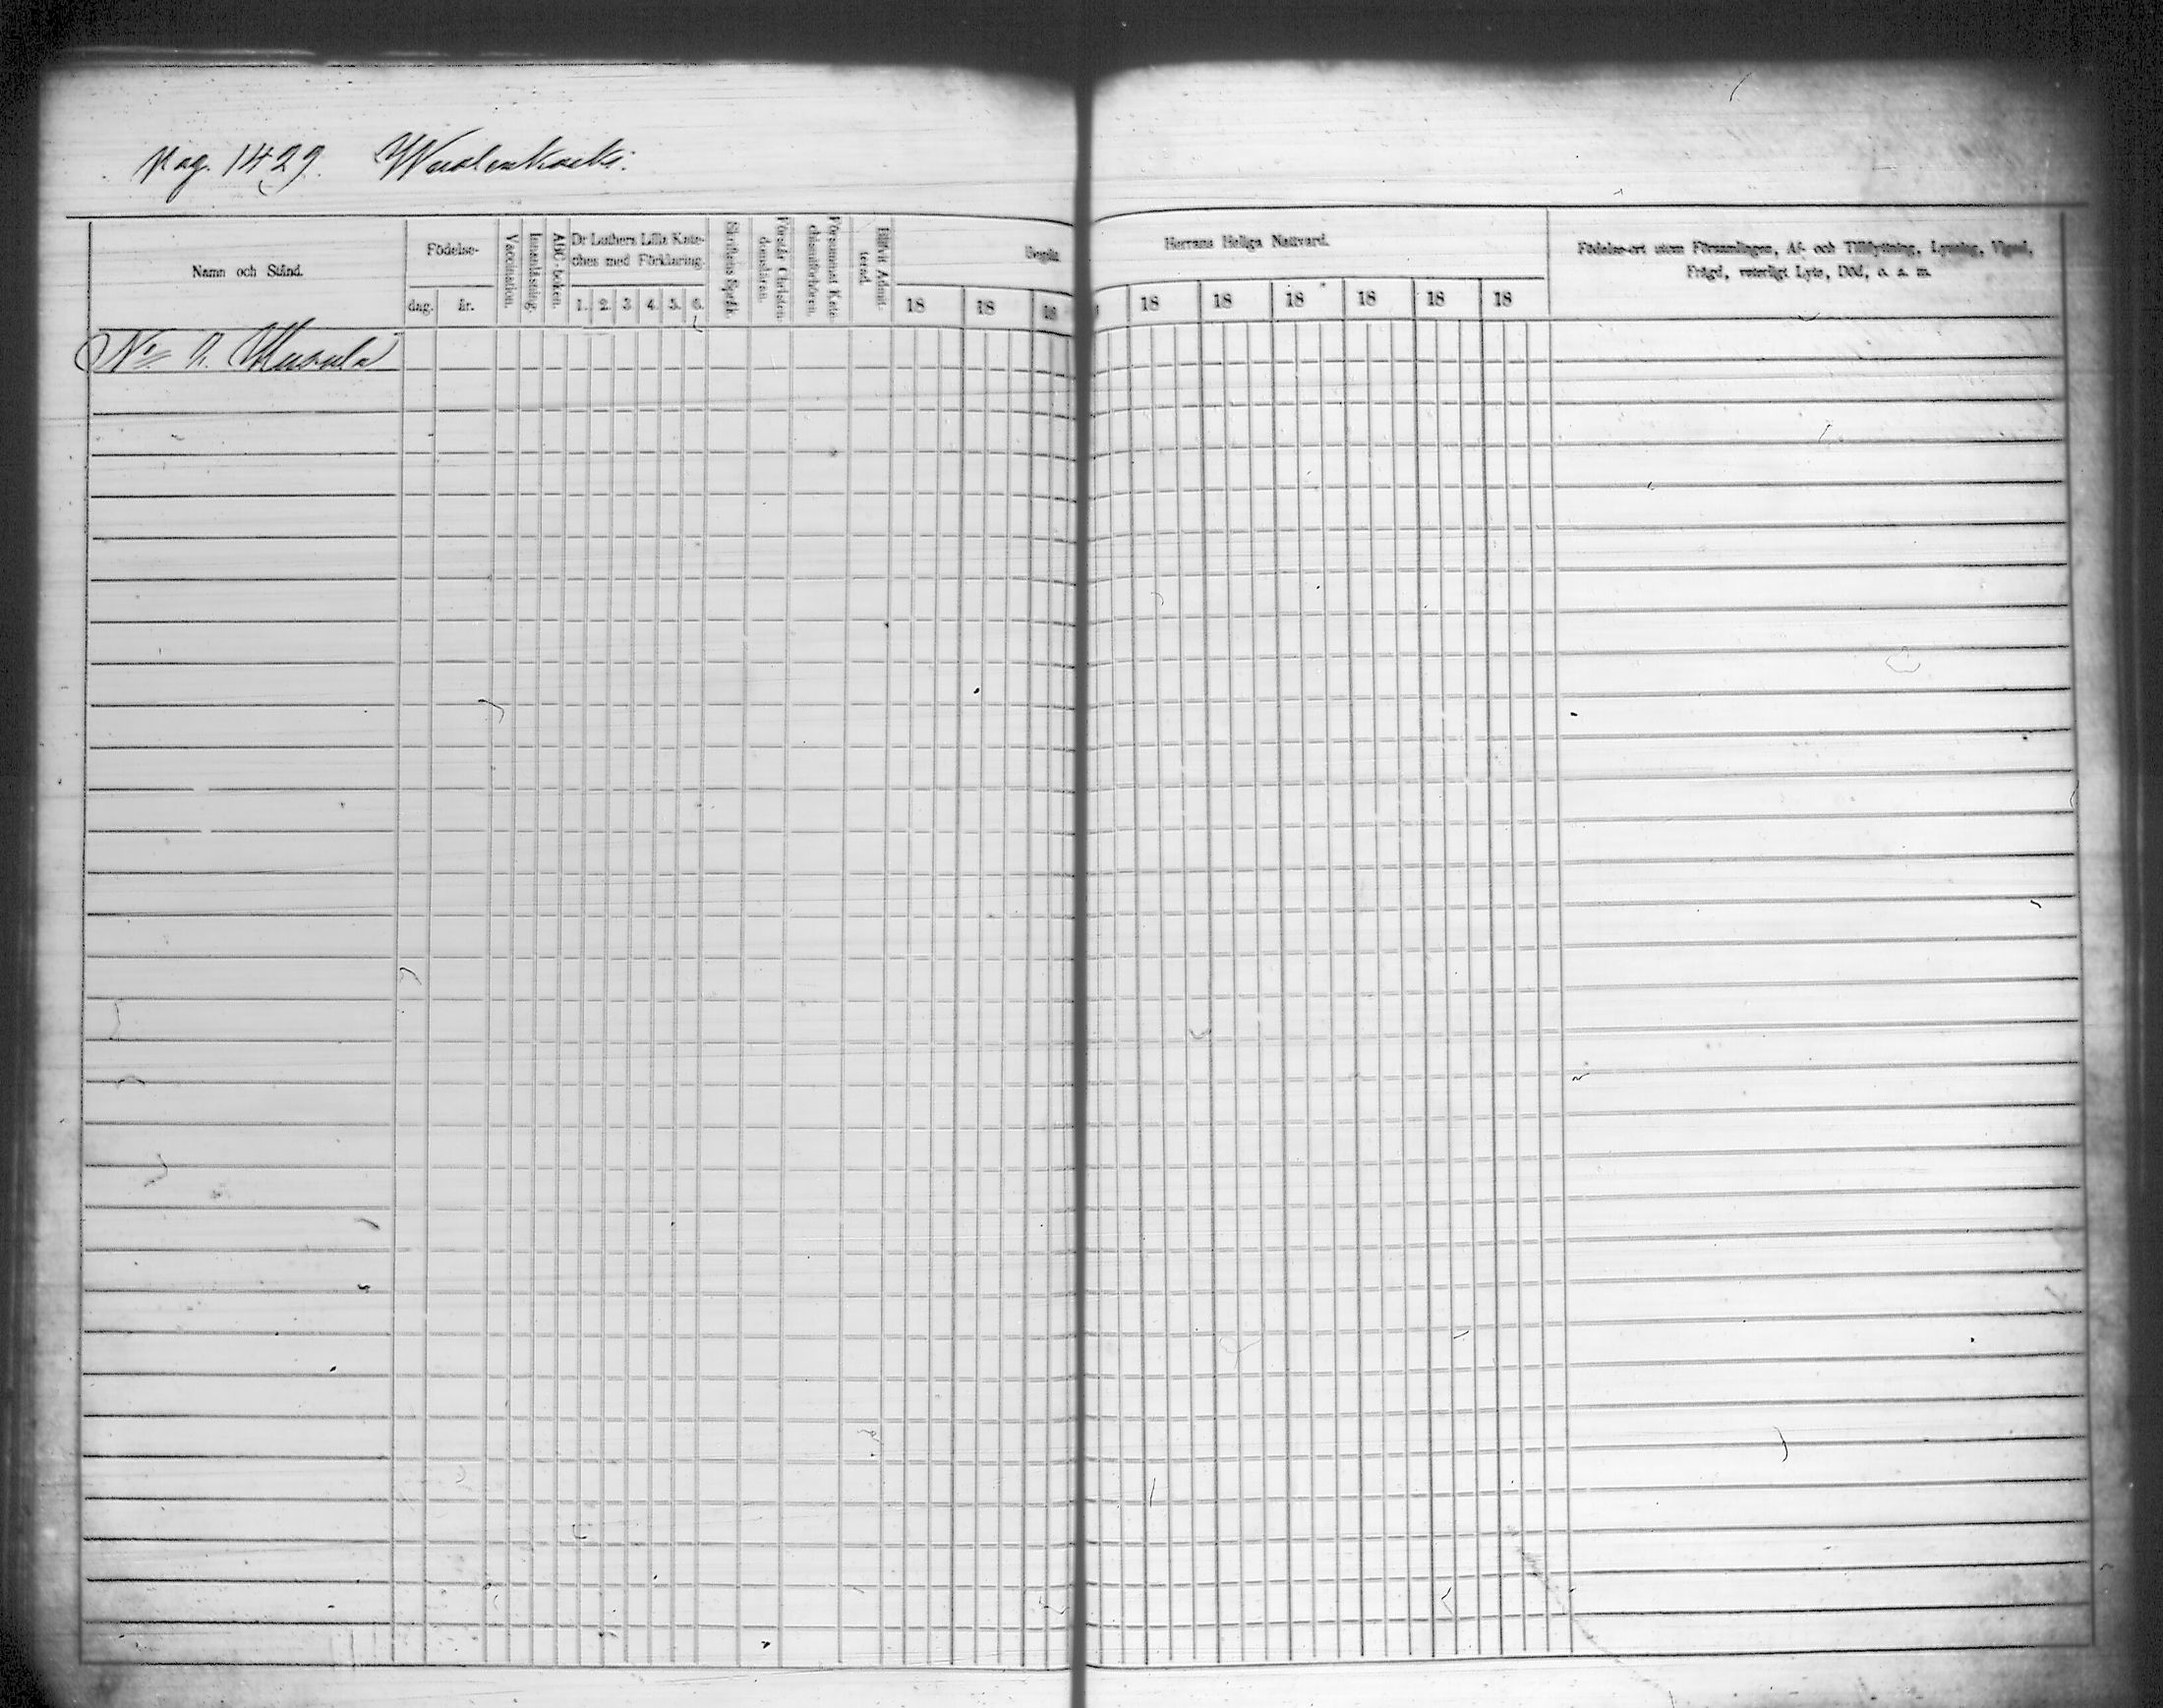 Pag. 1429. Wuolenkoski.
Namn och Stånd.
Födelse-
dag.
år.
Vaccination.
Innanläsning.
ABC-boken.
Dr Luthers Lilla Kate-
ches med Förklaring.
1. 2. 3. 4. 5. 6.
Skriftens Språk.
Förstår Christen-
domsläran.
Försummat Kate-
chismiförhören.
Blifvit Admit-
terad.
Begått
18 18 18
Herrans Heliga Nattvard.
18 18 18 18 18 18
Födelse-ort utom Församlingen, Af- och Tillflyttning, Lysning, Vigsel,
Frägd, veterligt Lyte, Död, o. s. m.
No